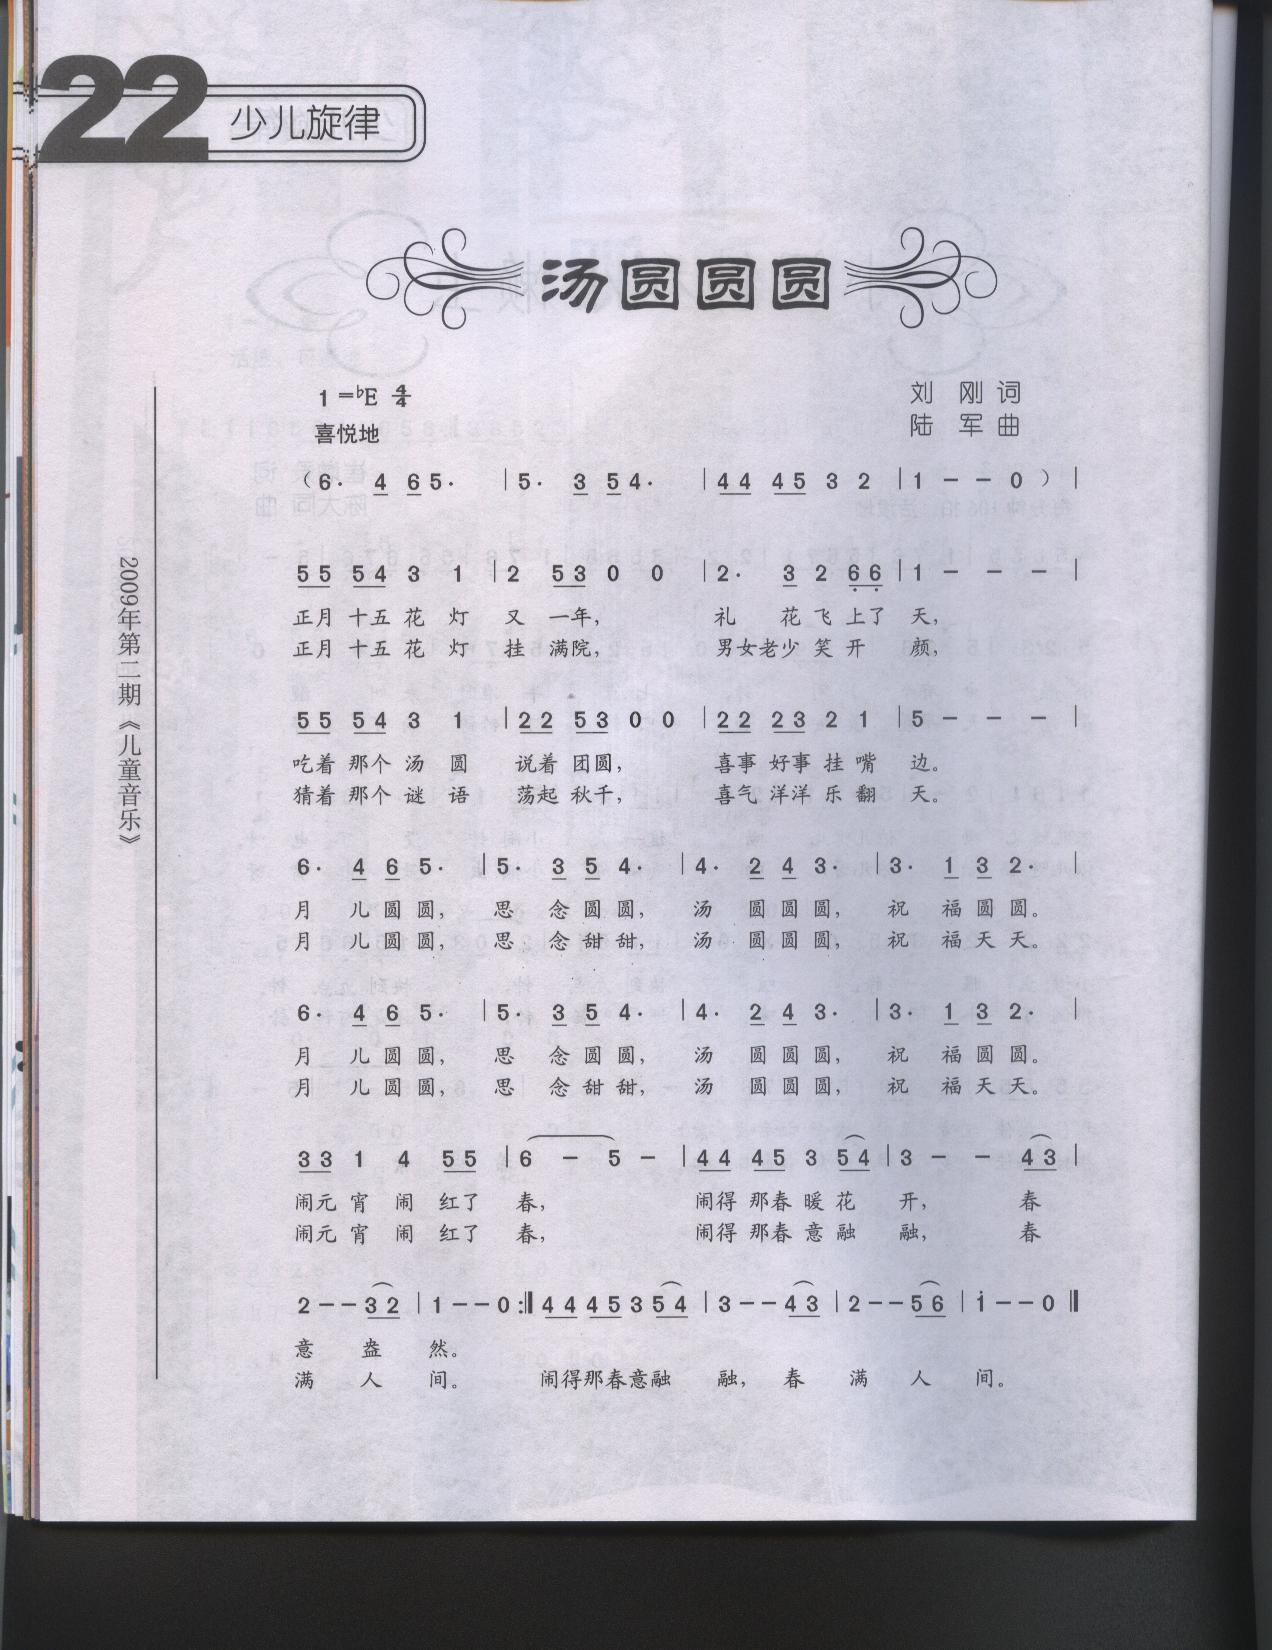 22 少儿旋律
汤圆圆圆
1=♭E 4/4
刘 刚 词
喜悦地
陆 军 曲
2009年第二期《儿童音乐》
（6· 4 6 5· | 5· 3 5 4· | 44 45 3 2 | 1 - - 0 ）|
55 54 3 1 | 2 53 0 0 | 2· 3 2 66 | 1 - - - |
正月 十五 花 灯 又 一年， 礼 花 飞 上了 天，
正月 十五 花 灯 挂 满院， 男女老少 笑 开 颜，
55 54 3 1 | 22 53 0 0 | 22 23 2 1 | 5 - - - |
吃着 那个 汤 圆 说着 团圆， 喜事 好事 挂 嘴 边。
猜着 那个 谜 语 荡起 秋千， 喜气 洋洋 乐 翻 天。
6· 4 6 5· | 5· 3 5 4· | 4· 2 4 3· | 3· 1 3 2· |
月 儿 圆 圆， 思 念 圆 圆， 汤 圆 圆 圆， 祝 福 圆 圆。
月 儿 圆 圆， 思 念 甜 甜， 汤 圆 圆 圆， 祝 福 天 天。
6· 4 6 5· | 5· 3 5 4· | 4· 2 4 3· | 3· 1 3 2· |
月 儿 圆 圆， 思 念 圆 圆， 汤 圆 圆 圆， 祝 福 圆 圆。
月 儿 圆 圆， 思 念 甜 甜， 汤 圆 圆 圆， 祝 福 天 天。
33 1 4 55 | 6 - 5 - | 44 45 3 54 | 3 - - 43 |
闹元 宵 闹 红了 春， 闹得 那春 暖 花 开， 春
闹元 宵 闹 红了 春， 闹得 那春 意 融 融， 春
2 - - 32 | 1 - - 0 :‖ 44 45 3 54 | 3 - - 43 | 2 - - 56 | 1 - - 0 ‖
意 盎 然。
满 人 间。 闹得那春意融 融， 春 满 人 间。